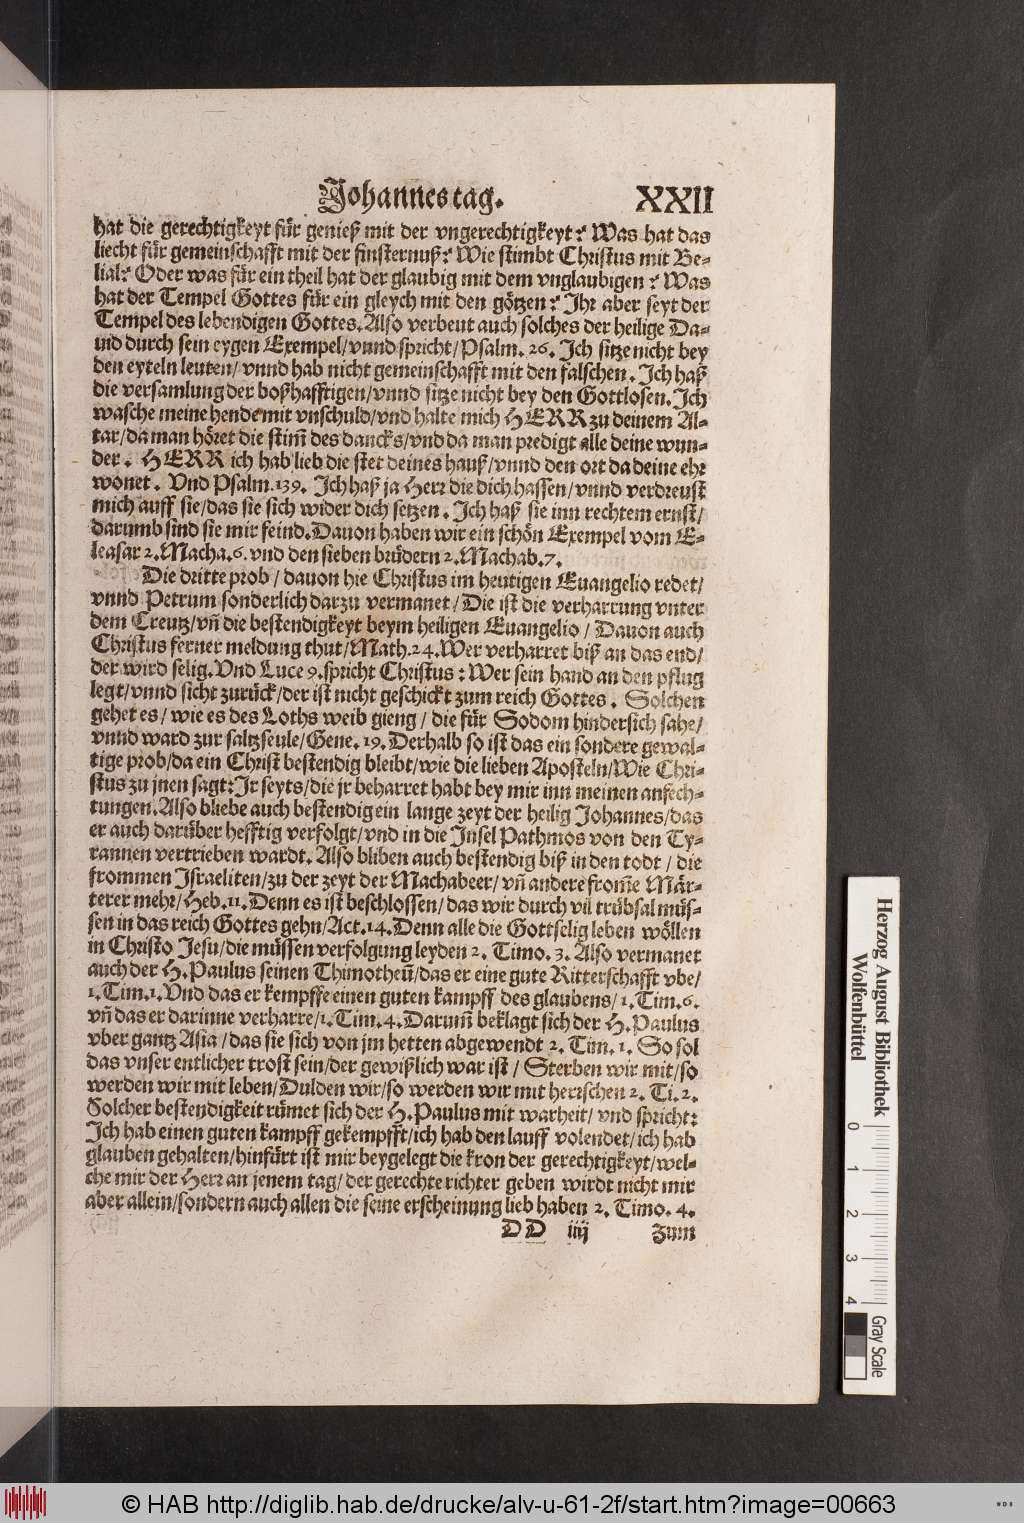 Johannes tag. XXII
hat die gerechtigkeyt für genieß mit der vngerechtigkeyt? Was hat das
liecht für gemeinschafft mit der finsternuß? Wie stimbt Christus mit Be-
lial? Oder was für ein theil hat der glaubig mit dem vnglaubigen? Was
hat der Tempel Gottes für ein gleych mit den götzen? Ihr aber seyt der
Tempel des lebendigen Gottes. Also verbeut auch solches der heilige Da-
uid durch sein eygen Exempel/vnnd spricht/Psalm. 26. Ich sitze nicht bey
den eyteln leuten/vnnd hab nicht gemeinschafft mit den falschen. Ich haß
die versamlung der boßhafftigen/vnnd sitze nicht bey den Gottlosen. Ich
wasche meine hende mit vnschuld/vnd halte mich HERR zu deinem Al-
tar/da man höret die stim̃ des dancks/vnd da man predigt alle deine wun-
der. HERR ich hab lieb die stet deines hauß/vnnd den ort da deine ehr
wonet. Vnd Psalm. 139. Ich haß ja Herr die dich hassen/vnnd verdreust
mich auff sie/das sie sich wider dich setzen. Ich haß sie inn rechtem ernst/
darumb sind sie mir feind. Dauon haben wir ein schön Exempel vom E-
leasar 2. Macha. 6. vnd den sieben brüdern 2. Machab. 7.
Die dritte prob/dauon hie Christus im heutigen Euangelio redet/
vnnd Petrum sonderlich darzu vermanet/Die ist die verharrung vnter
dem Creutz/vñ die bestendigkeyt beym heiligen Euangelio/Dauon auch
Christus ferner meldung thut/Math. 24. Wer verharret biß an das end/
der wird selig. Vnd Luce 9. spricht Christus: Wer sein hand an den pflug
legt/vnnd sicht zurück/der ist nicht geschickt zum reich Gottes. Solchen
gehet es/wie es des Loths weib gieng/die für Sodom hindersich sahe/
vnnd ward zur saltzseule/Gene. 19. Derhalb so ist das ein sondere gewal-
tige prob/da ein Christ bestendig bleibt/wie die lieben Aposteln/Wie Chri-
stus zu jnen sagt: Jr seyts/die jr beharret habt bey mir inn meinen anfech-
tungen. Also bliebe auch bestendig ein lange zeyt der heilig Johannes/das
er auch darüber hefftig verfolgt/vnd in die Insel Pathmos von den Ty-
rannen vertrieben wardt. Also bliben auch bestendig biß in den todt/die
frommen Israeliten/zu der zeyt der Machabeer/vñ andere from̃e Mär-
terer mehr/Heb. 11. Denn es ist beschlossen/das wir durch vil trübsal müs-
sen in das reich Gottes gehn/Act. 14. Denn alle die Gottselig leben wöllen
in Christo Jesu/die müssen verfolgung leyden 2. Timo. 3. Also vermanet
auch der H. Paulus seinen Thimotheũ/das er eine gute Ritterschafft vbe/
1. Tim. 1. Vnd das er kempffe einen guten kampff des glaubens/1. Tim. 6.
vñ das er darinne verharre/1. Tim. 4. Darum̃ beklagt sich der H. Paulus
vber gantz Asia/das sie sich von jm hetten abgewendt 2. Tim. 1. So sol
das vnser entlicher trost sein/der gewißlich war ist/Sterben wir mit/so
werden wir mit leben/Dulden wir/so werden wir mit herrschen 2. Ti. 2.
Solcher bestendigkeit rümet sich der H. Paulus mit warheit/vnd spricht:
Ich hab einen guten kampff gekempfft/ich hab den lauff volendet/ich hab
glauben gehalten/hinfürt ist mir beygelegt die kron der gerechtigkeyt/wel-
che mir der Herr an jenem tag/der gerechte richter geben wirdt nicht mir
aber allein/sondern auch allen die seine erscheinung lieb haben 2. Timo. 4.
DD iiij Zum
Herzog August Bibliothek
Wolfenbüttel
0 1 2 3 4
Gray Scale
© HAB http://diglib.hab.de/drucke/alv-u-61-2f/start.htm?image=00663